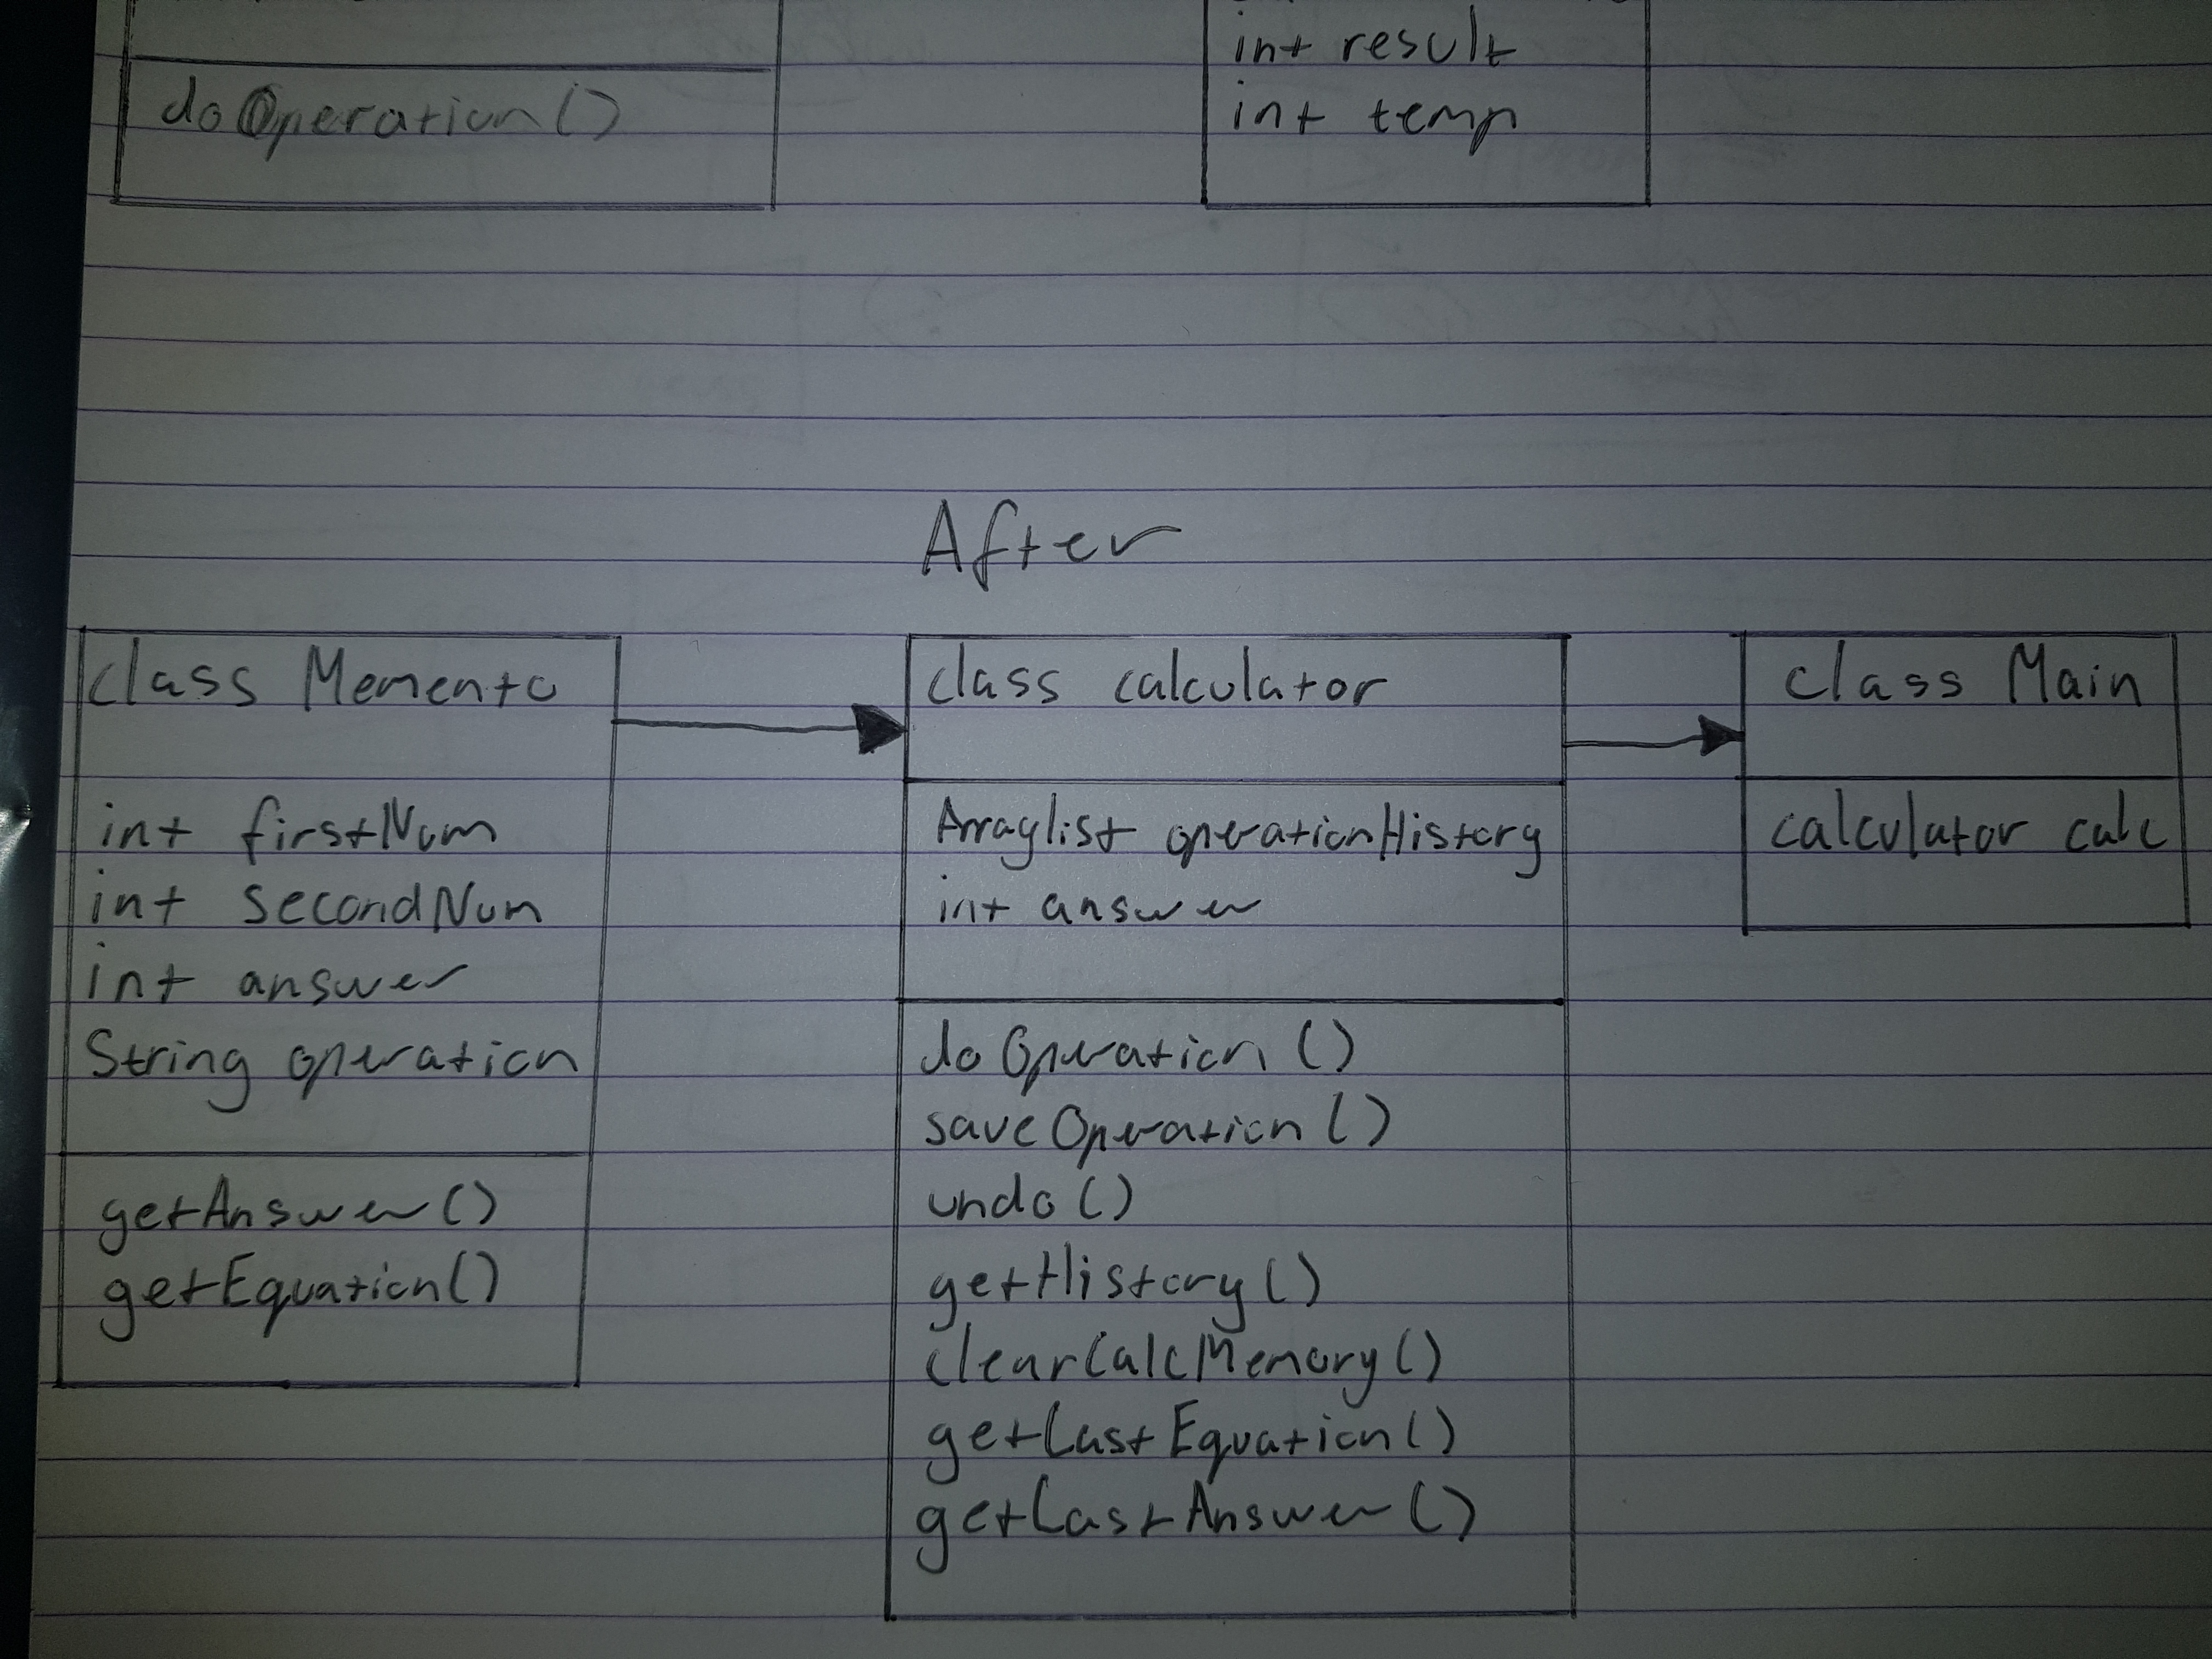 int result
doOperation()
int temp
After
class Memento
int firstNum
int secondNum
int answer
String operation
getAnswer()
getEquation()
class calculator
Arraylist operationHistory
int answer
doOperation()
saveOperation()
undo()
getHistory()
clearCalcMemory()
getLastEquation()
getLastAnswer()
class Main
calculator calc